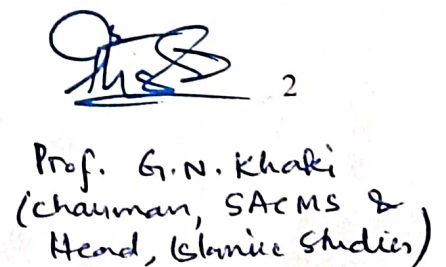 2
Prof. G.N. Khaki
(Chairman, SACMS &
Head, Islamic Studies)